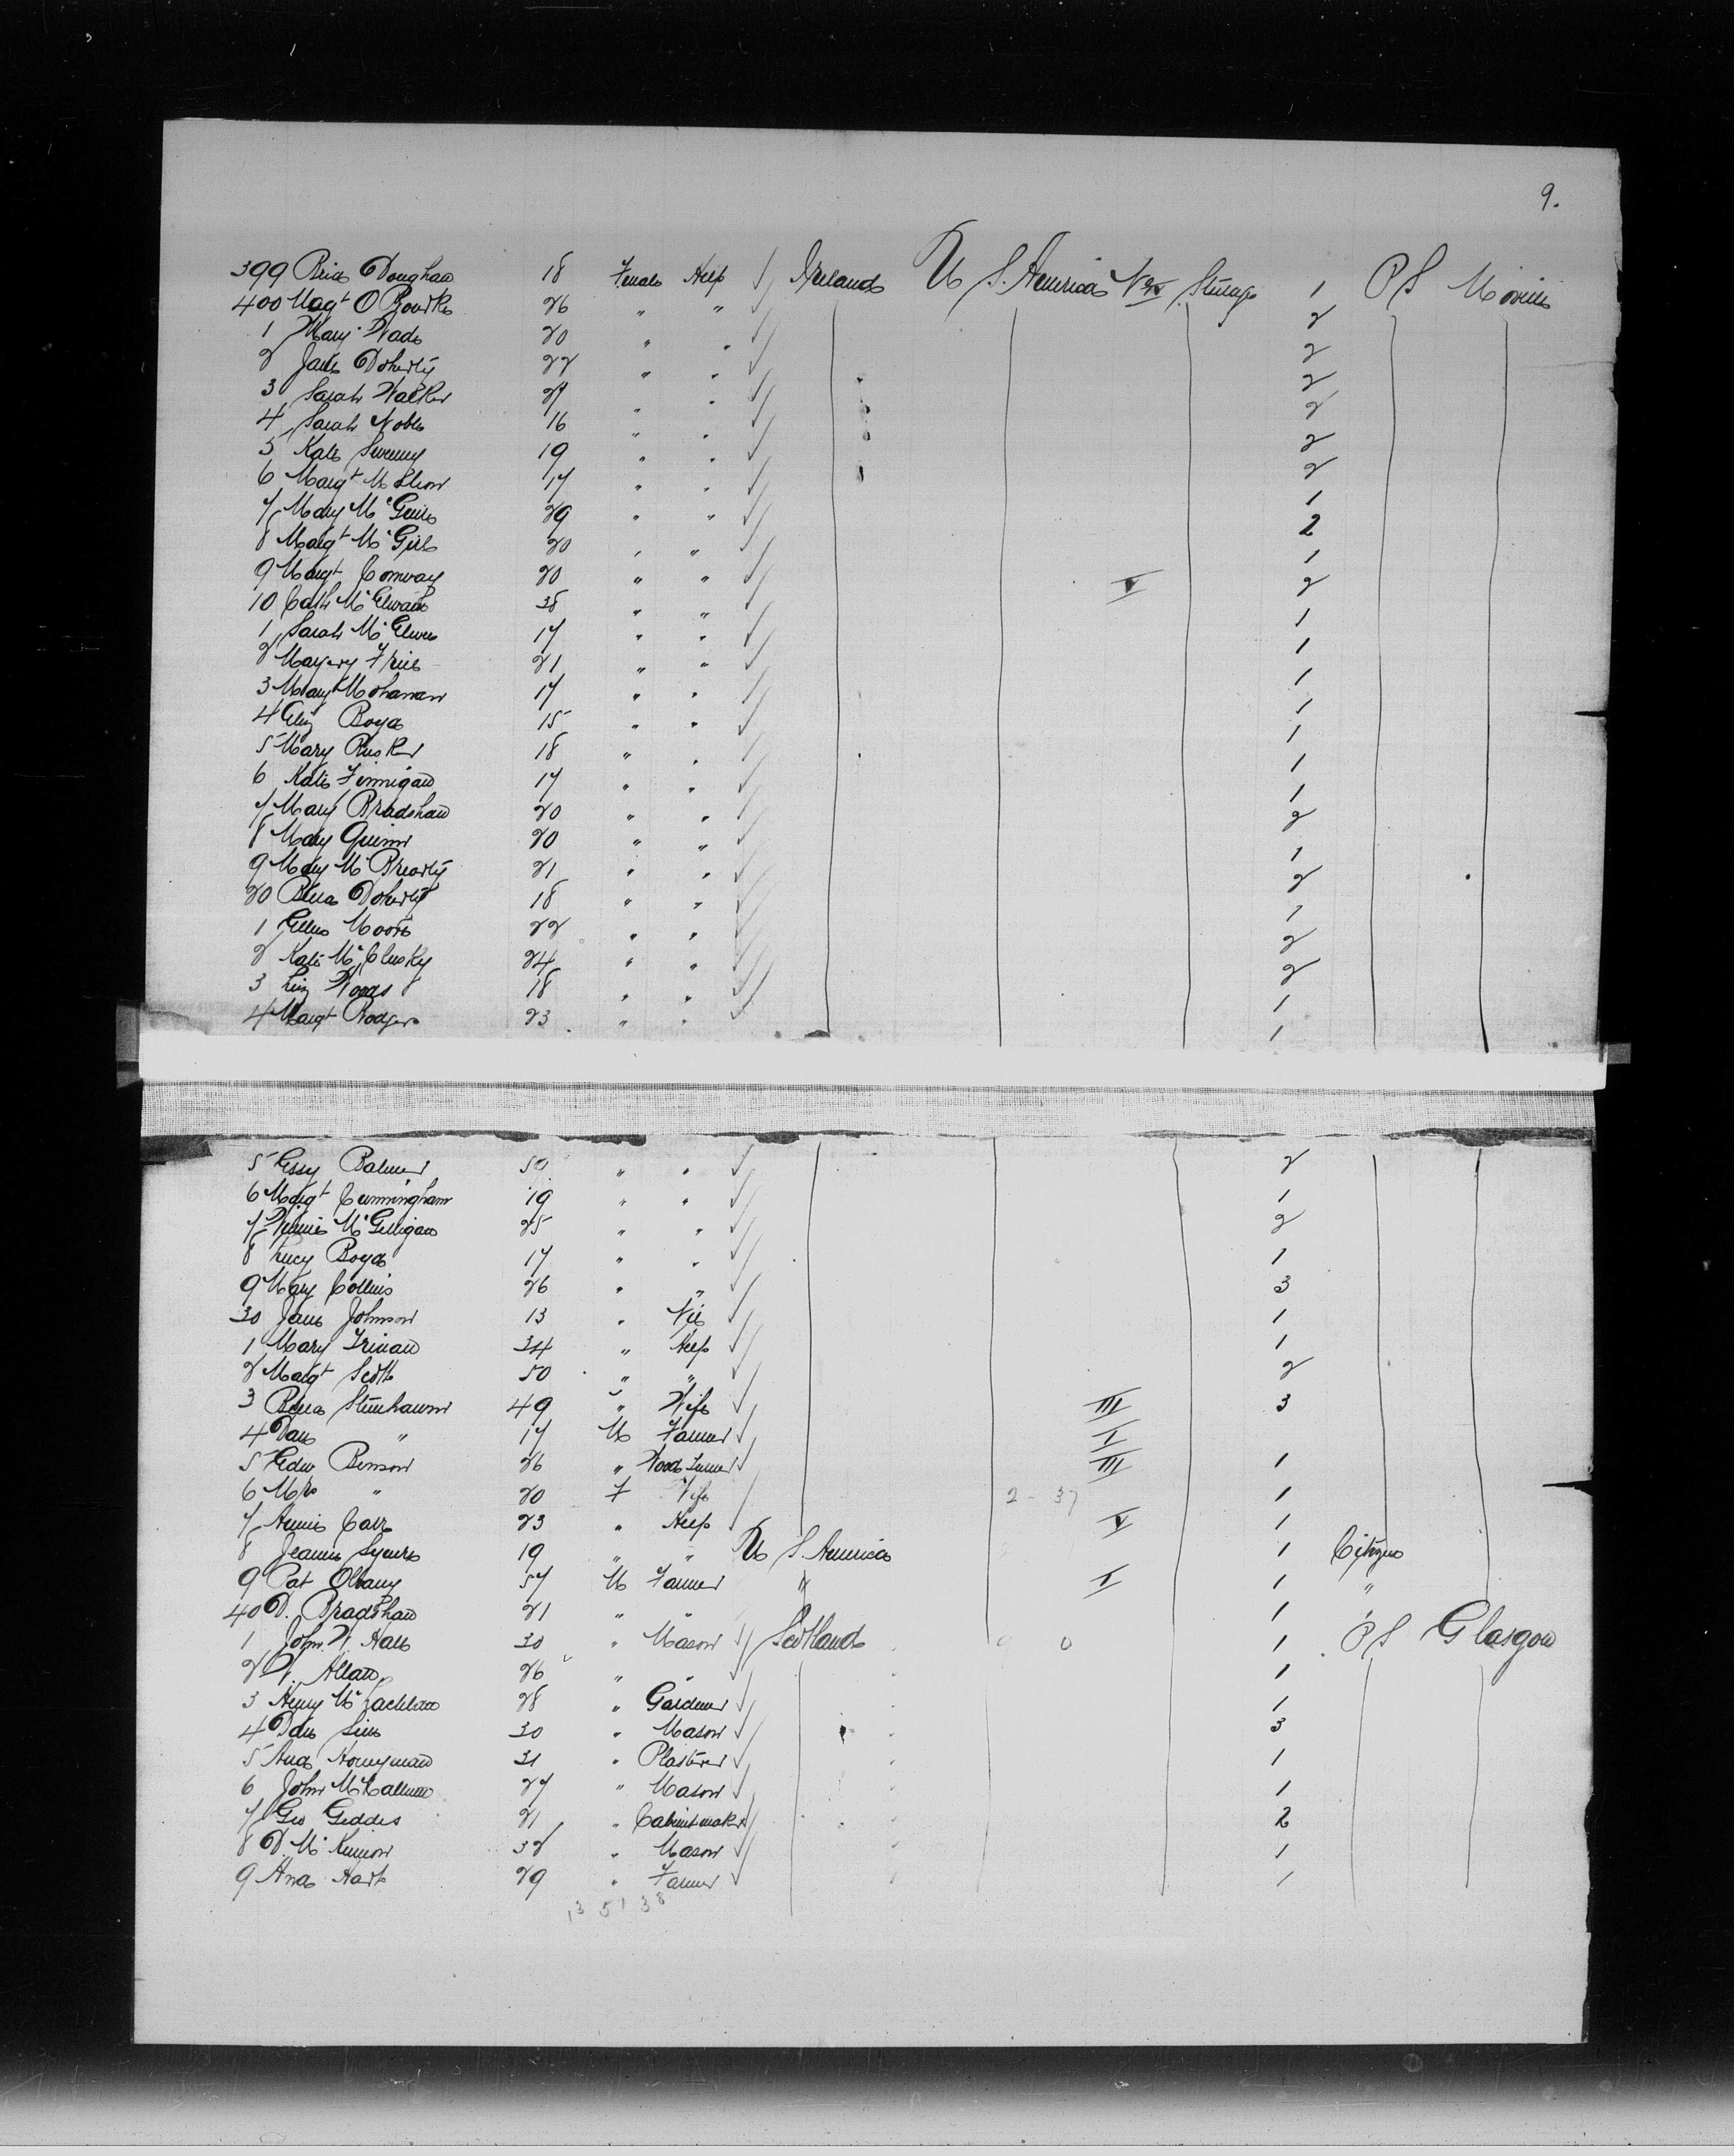 9.
399 18 Female Help Ireland U S. America Steerage 1 P S Moville
400 Magt O Rourke 26 " " 2
1 Mary Wade 20 " " 2
2 Jane Doherty 22 " " 2
3 Sarah Walker 27 " " 2
4 Sarah Noble 16 " " 2
5 Kate Sweeny 19 " " 2
6 Margt 17 " " 1
7 Mary McGuire 29 " " 2
8 Margt McGill 20 " " 1
9 Margt Conway 20 " " V 2
10 Cath McElwain 38 " " 1
1 Sarah McElwee 17 " " 1
2 Mayery Friel 21 " " 1
3 Mary Mohanan 17 " " 1
4 Eliz Boyd 15 " " 1
5 Mary Rusker 18 " " 1
6 Kate Finnigan 17 " " 1
7 Mary Bradshaw 20 " " 2
8 Mary Quinn 20 " " 1
9 Mary McBrearty 21 " " 2
20 Bella Doherty 18 " " 1
1 Ellen Moore 22 " " 2
2 Kate McClusky 24 " " 2
3 Liz Woods 18 " " 1
4 Margt Rodgers 23 " " 1
5 Essy Balmer 50 " " 2
6 Margt Cunningham 19 " " 1
7 McGilligan 25 " " 2
8 Lucy Boyd 17 " " 1
9 Mary Collins 26 " " 3
30 Jane Johnson 13 " Nil 1
1 Mary 34 " Help 1
2 Margt Scott 50 " " 2
3 Bella 49 " Wife III 3
4 Dan " 17 M Farmer I
5 Edw Benson 26 " Wood Turner III 1
6 Mrs " 20 F Wife 2 - 37 1
7 Annie Carr 23 " Help V 1
8 Jeannie 19 " " U S. America 1 Citizen
9 Pat 57 M Farmer " I 1 "
40 D. Bradshaw 21 " " 1 "
1 John W. Hall 30 " Mason Scotland 0 1 P S Glasgow
2 W. Allan 26 " " 1
3 Henry McLachlan 28 " Gardener 1
4 Dan Sim 30 " Mason 3
5 And Honeyman 31 " Plasterer 1
6 John McCallum 27 " Mason 1
7 Geo Geddes 21 " Cabinetmaker 2
8 D. McKinnon 32 " Mason 1
9 And Hart 29 " Farmer 1
13 51 38